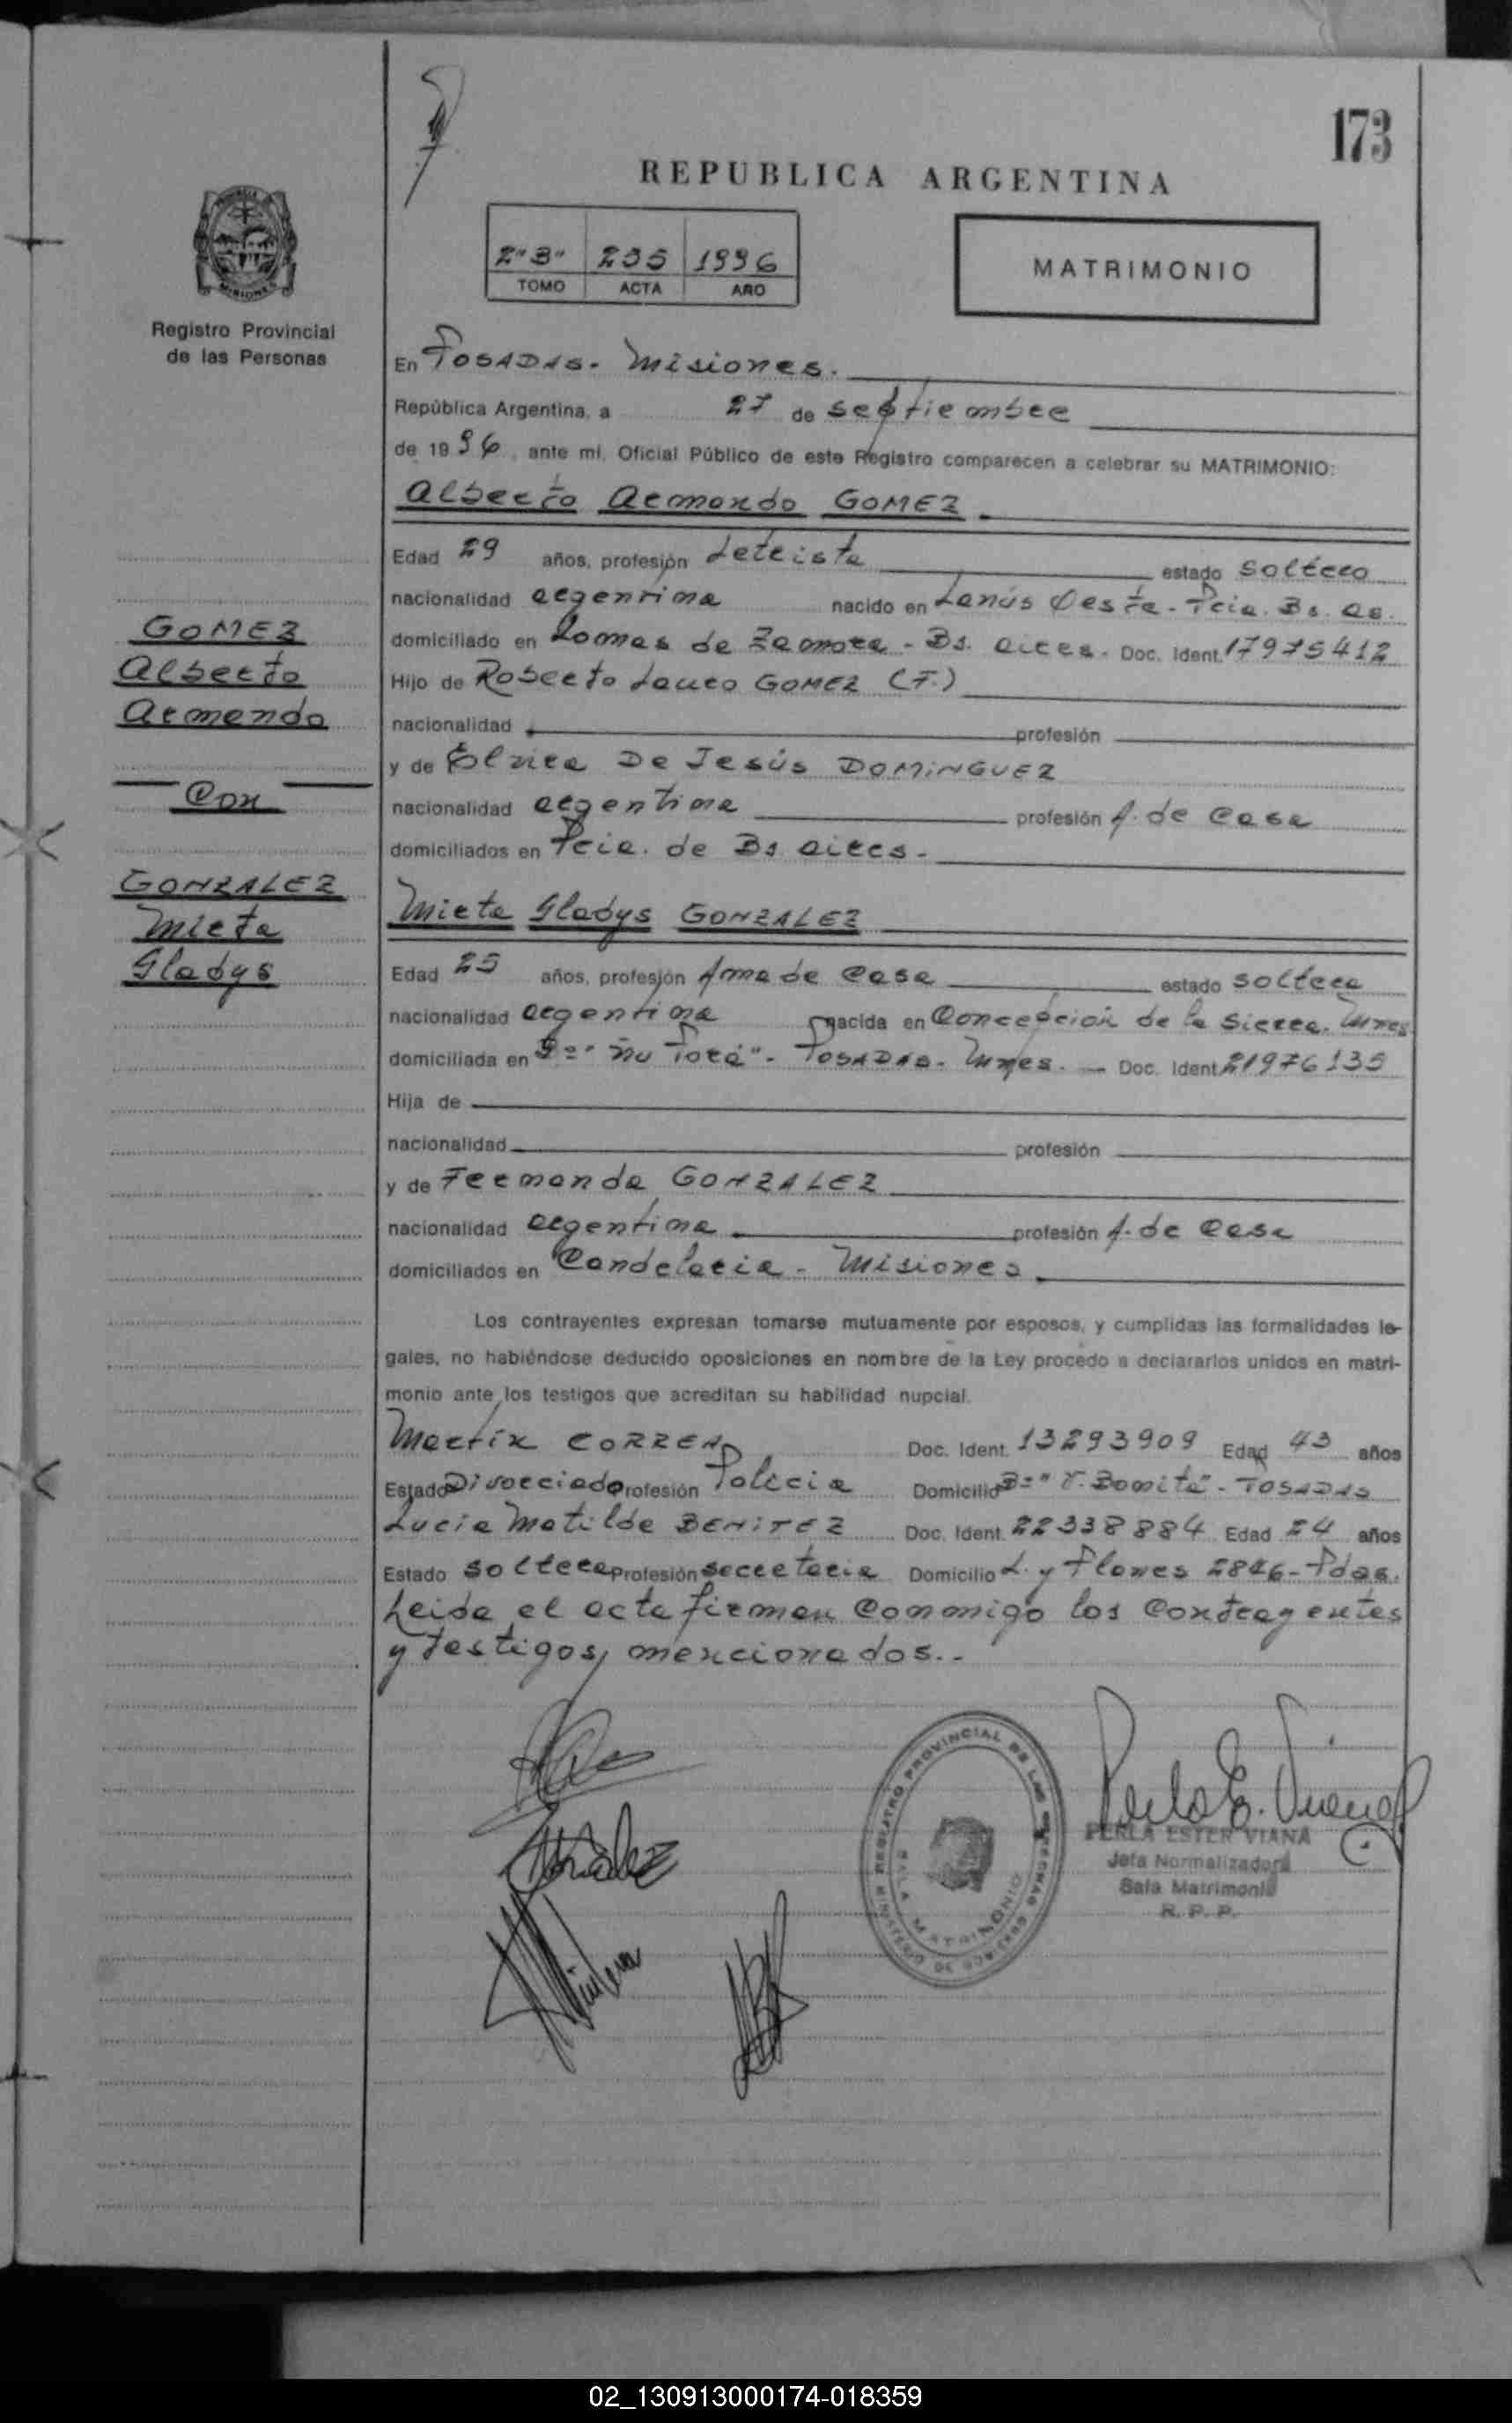 173
REPUBLICA ARGENTINA
2"B" 235 1996
TOMO ACTA AÑO
MATRIMONIO
MISIONES
Registro Provincial
de las Personas
En POSADAS - Misiones.
República Argentina, a 27 de septiembre
de 1996, ante mí, Oficial Público de este Registro comparecen a celebrar su MATRIMONIO:
Alberto Armando GOMEZ
Edad 29 años, profesión Letrista estado soltero
nacionalidad argentina nacido en Lanús Oeste - Pcia. Bs. As.
domiciliado en Lomas de Zamora - Bs. Aires. Doc. Ident. 17975412
Hijo de Roberto Lauro GOMEZ (F.)
nacionalidad profesión
y de De Jesús DOMINGUEZ
nacionalidad argentina profesión A. de Casa
domiciliados en Pcia. de Bs Aires -
Mirta Gladys GONZALEZ
Edad 25 años, profesión Ama de Casa estado soltera
nacionalidad argentina nacida en Concepción de la Sierra. Mnes.
domiciliada en Bº "Ñu Porá" - POSADAS - Mnes. - Doc. Ident. 21976135
Hija de
nacionalidad profesión
y de Fernanda GONZALEZ
nacionalidad argentina profesión A. de Casa
domiciliados en Candelaria - Misiones
Los contrayentes expresan tomarse mutuamente por esposos, y cumplidas las formalidades le-
gales, no habiéndose deducido oposiciones en nombre de la Ley procedo a declararlos unidos en matri-
monio ante los testigos que acreditan su habilidad nupcial.
Martín CORREA Doc. Ident. 13293909 Edad 43 años
Estado Divorciado Profesión Policía Domicilio Bº "V. Bonita" - POSADAS
Lucía Matilde BENITEZ Doc. Ident. 22338884 Edad 24 años
Estado Soltera Profesión secretaria Domicilio L. y Planes 2846 - Pdas.
Leída el acta firman conmigo los contrayentes
y testigos mencionados..-
GOMEZ
Alberto
Armando
Con
GONZALEZ
Mirta
Gladys
REGISTRO PROVINCIAL DE LAS PERSONAS
MINISTERIO DE GOBIERNO
SALA MATRIMONIO
Perla E. Viana
PERLA ESTER VIANA
Jefa Normalizadora
Sala Matrimonio
R. P. P.
02_130913000174-018359